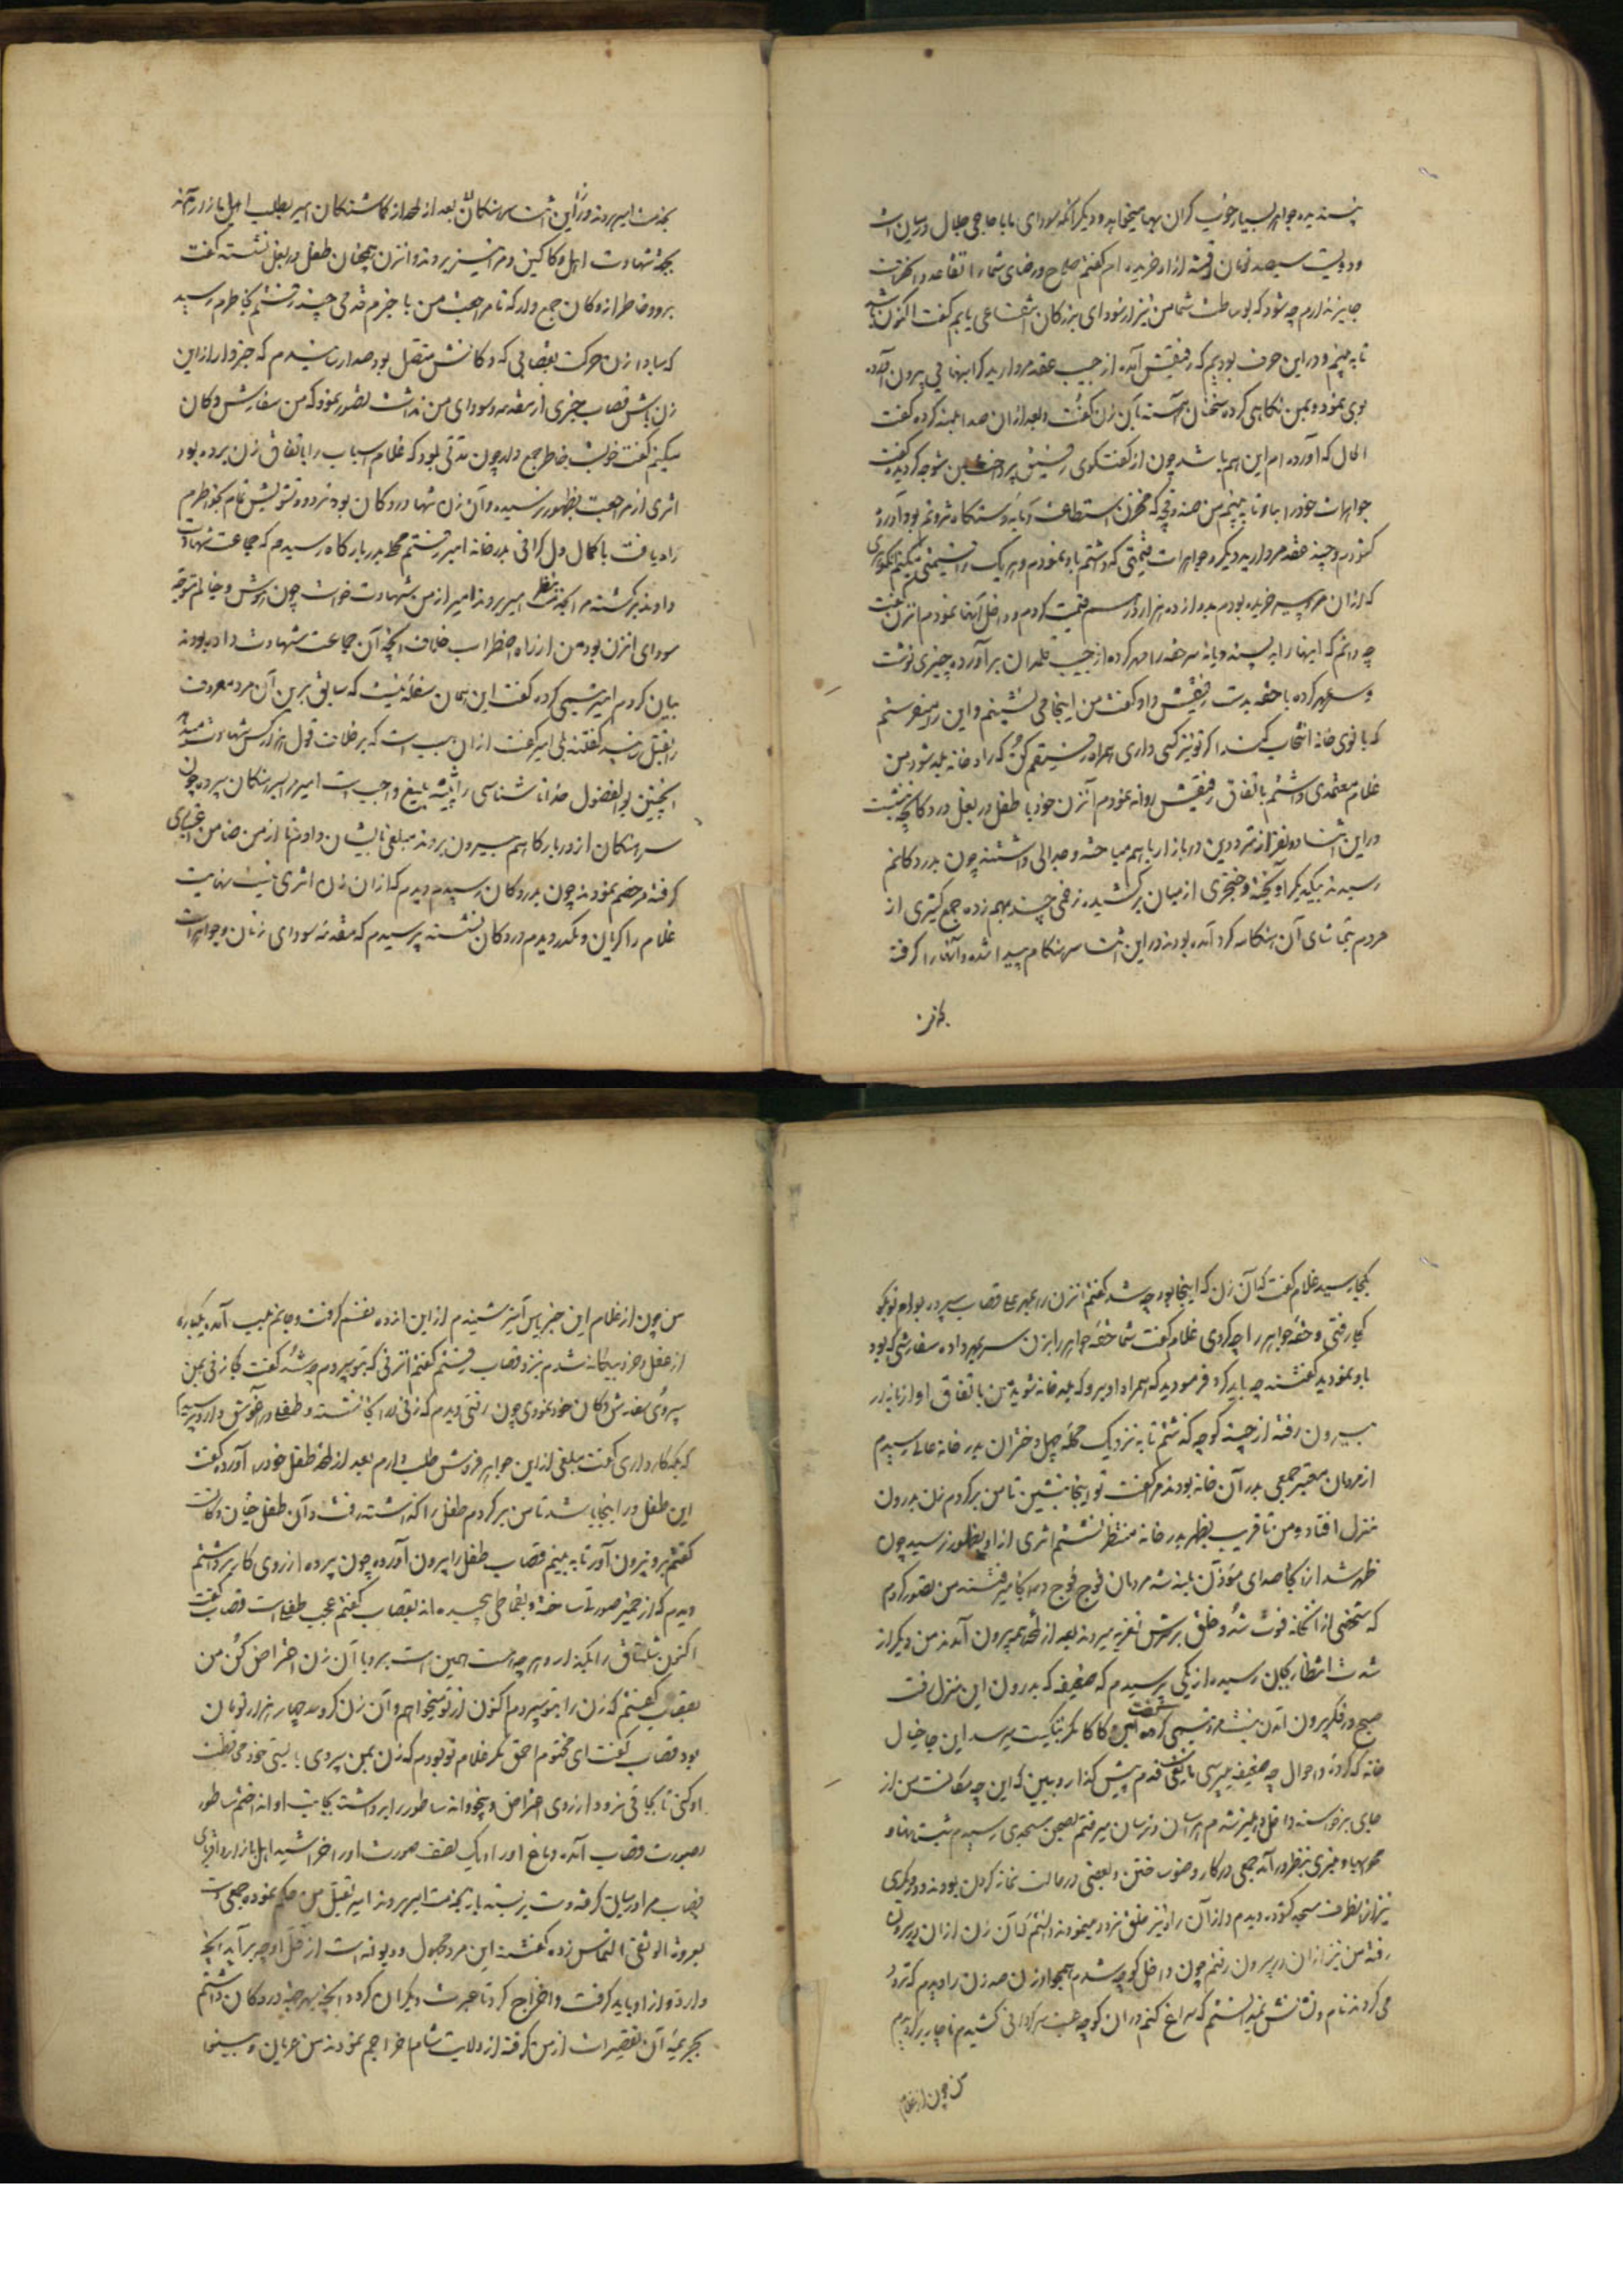 پسندیده جواهر بسیار خوب کران بها میخواهد و دیگر آنکه سودای بابا حاجی جلال در میان است
و دویست سیصد تومان اقمشه از او خریده ام کفتم صلاح و رضای شما را
جایز ندارم چه شود که بوساطت شما من نیز از سودای بزرکان انتفاعی یابم کفت اکنون
تا به بینم و در این حرف بودیم که رفیقش آمده از جیب حقه مروارید کرانبهائی بیرون آورده
بوی نمود و بمن نکاهی کرده سخنان آهسته بآن زن کفت و بعد از آن صدا بلند کرده کفت
الحال که آورده ام این هم باشد چون از کفتکوی رفیقش پرداخت بمن متوجه کردیده کفت
جواهرات خود را بیاور تا به بینم من صندوقچه که مخزن استطاعت و مایه دستکاه ثروتم بود آورده
کشودم و چند حقه مروارید دیکر و جواهرات قیمتی که داشتم باو نمودم و هر یک را
که از آن مرد پیر خریده بودم بدوازده هزار درم قیمت کردم و داخل آنها نمودم آنزن کفت
چه دانم که اینها را به پسندد یا نه سر حقه را مهر کرده از جیب قلمدان برآورده چیزی نوشت
و سر بمهر کرده با حقه بدست رفیقش داد و کفت من اینجا می نشینم و این را میفرستم
که بانوی خانه انتخاب کند اکر تو نیز کسی داری همراه رفیقم کن که راه خانه بلد شود من
غلام معتمدی داشتم باتفاق رفیقش روانه نمودم آنزن خود با طفل در بغل در دکانچه نشست
در این اثنا دو نفر از مترددین در بازار با هم مباحثه و جدالی داشتند چون بدر دکانم
رسیدند بیکدیکر آویخته و خنجری از میان برکشیده زخمی چند بهم زده جمع کثیری از
مردم بتماشای آن هنکامه کرد آمده بودند در این اثنا سرهنکان پیدا شده و آنها را کرفته
بخدمت امیر بردند و در این اثنا سرهنکان بعد از لحظه از کماشتکان امیر بطلب اهل بازار آمده
بجهة شهادت اهل دکاکین و مرا نیز بردند و آنزن همچنان طفل در بغل نشسته کفت
برو و خاطر از دکان جمع دار که تا مراجعت من با خبرم قدمی چند رفتم بخاطرم رسید
که مبادا زن حرکت بقصابی که دکانش متصل بود صدا رسانیدم که خبردار از این
زن باش قصاب خبری از مقدمه و سودای من نداشت تصور نمود که من سفارش دکان
میکنم کفت خوبست خاطر جمع دار چون مدتی بود که غلام اسباب را باتفاق زن برده بود
اثری از مراجعت بظهور نرسیده و آن زن تنها در دکان بود تردد و تشویش تمام بخاطرم
راه یافت با کمال دل کرانی بدرخانه امیر رفتم محل بدر بارکاه رسیدم که جماعت شهادت
داده برکشتند مرا بخدمت امیر بردند امیر از من شهادت خواست چون هوش و خیالم متوجه
سودای آنزن بود من از راه اضطراب خلاف آنچه آن جماعت شهادت داده بودند
بیان کردم امیر تبسمی کرده کفت این همان سفله ایست که سابق بر این آن مرد معروف
را بقتل رسانید کفتند بلی امیر کفت از آن سبب است که بر خلاف قول هزار کس شهادت میدهد
اینچنین بوالفضول خدا ناشناسی را تنبیه بلیغ واجب است امیر مرا بسرهنکان سپرده چون
سرهنکان از دربارکاهم بیرون بردند مبلغی بایشان دادم تا از من ضامن
کرفته مرخصم نمودند چون بدر دکان رسیدم دیدم که از آن زن اثری نیست بنهایت
غلام را کریان و مکدر دیدم در دکان نشسته پرسیدم که مقدمه سودای زنان و جواهرات
بکجا رسید غلام کفت که آن زن که اینجا بود چه شد کفتم آنزن را بعهده قصاب سپرده بودم تو بکو
کجا رفتی و حقه جواهر را چه کردی غلام کفت شما حقه جواهر را بزن سر بمهر داده سفارشی که بود
باو نمودید کفتند چه باید کرد فرمودید که همراه او برو که بلد خانه شوید من باتفاق او از بازار
بیرون رفته از چند کوچه کذشتم تا به نزدیک محله چهل دختران بدر خانه عالی رسیدم
از مردمان معتبر جمعی بدر آن خانه بودند مرا کفت تو اینجا بنشین تا من برکردم زن بدرون
منزل افتاد و من تا قریب بظهر بدر خانه منتظر نشستم اثری از او بظهور نرسید چون
ظهر شد از آنجا صدای مؤذن بلند شد مردمان فوج فوج در آنجا میرفتند من تصور کردم
که شخصی از آنخانه فوت شده و خلق بر سرش تعزیه میروند بعد از لحظه بیرون آمدند من دیکر از
شدت انتظار بجان رسیده از یکی پرسیدم که ضعیفه که بدرون این منزل رفت
صبح در فکر بیرون آمدن نیست مرد تبسمی کرده کفت ای کاکا مکر بنکت میرسد این جا خیال
خانه که کرده و احوال چه ضعیفه میپرسی قدم پیش کذار و ببین که این چه مکانست من از
جای برخواسته داخل دهلیز شدم هراسان و ترسان میرفتم بصحن مسجدی رسیدم
محرابها و منبری بنظر درآمد جمعی در کار وضو ساختن و بعضی در حالت نماز کردن بودند و در دیکری
نیز از آنطرف مسجد کشوده دیدم و از آن راه نیز خلق تردد مینمودند دانستم که آن زن از آن در بیرون
رفته من نیز از آن در بیرون رفتم چون داخل کوچه شدم همچو او زن صد زن را دیدم که تردد
می کردند نام و نشانش نمیدانستم که سراغ کنم در آن کوچه عبث سرکردانی کشیدم ناچار برکردیدم
من چون از غلام
من چون از غلام این خبر یاس آمیز شنیدم از این اندوه نفسم کرفت و جانم بلب آمد یکباره
از عقل و خرد بیکانه شدم نزد قصاب رفتم کفتم آنزنی که بتو سپردم چه شد کفت کجا زنی بمن
سپردی سفارش دکان خود نمودی چون رفتی دیدم که زنی در آنجا نشسته و طفلی در آغوش دارد پرسیدم
که چکار داری کفت مبلغی از این جواهر فروش طلب دارم بعد از لحظه طفل خود را آورده کفت
این طفل در اینجا باشد تا من برکردم طفل را کذاشته رفت و آن طفل
کفتم برو بیرون آور تا به بینم قصاب طفل را بیرون آورده چون پرده از روی کار برداشتم
دیدم که از خمیر صورتی ساخته و بقماطی پیچیده اند بقصاب کفتم عجب طفلی است قصاب کفت
اکنون شلتاق را بکذار و هر چه هست همین است برو با آن زن اعتراض کن من
بقصاب کفتم که زن را بتو سپردم اکنون از تو میخواهم و آن زن کرو سه چهار هزار تومان
بود قصاب کفت ای مختوم احمق مکر غلام تو بودم که زن بمن سپردی بایستی خود محافظت
او کنی تا بجائی نرود از روی اعتراض و بیخودانه ساطور را برداشت بجانب او انداختم ساطور
بصورت قصاب آمده دماغ او را با یک نصف صورت او را خراشید اهل بازار و اقربای
قصاب مرا در میان کرفته دست بر بسته باز بخدمت امیر بردند امیر بقتل من حکم نموده جمعی دست
بعروة الوثقی التماس زده کفتند این مرد مجهول و دیوانه است از قتل او چه برآید آنچه
دارد از او باید کرفت و اخراج کرد تا عبرت دیکران کردد آنچه بهر جهت در دکان داشتم
بجریمه آن تقصیرات از من کرفته از ولایت شام اخراجم نمودند من عریان و بینوا